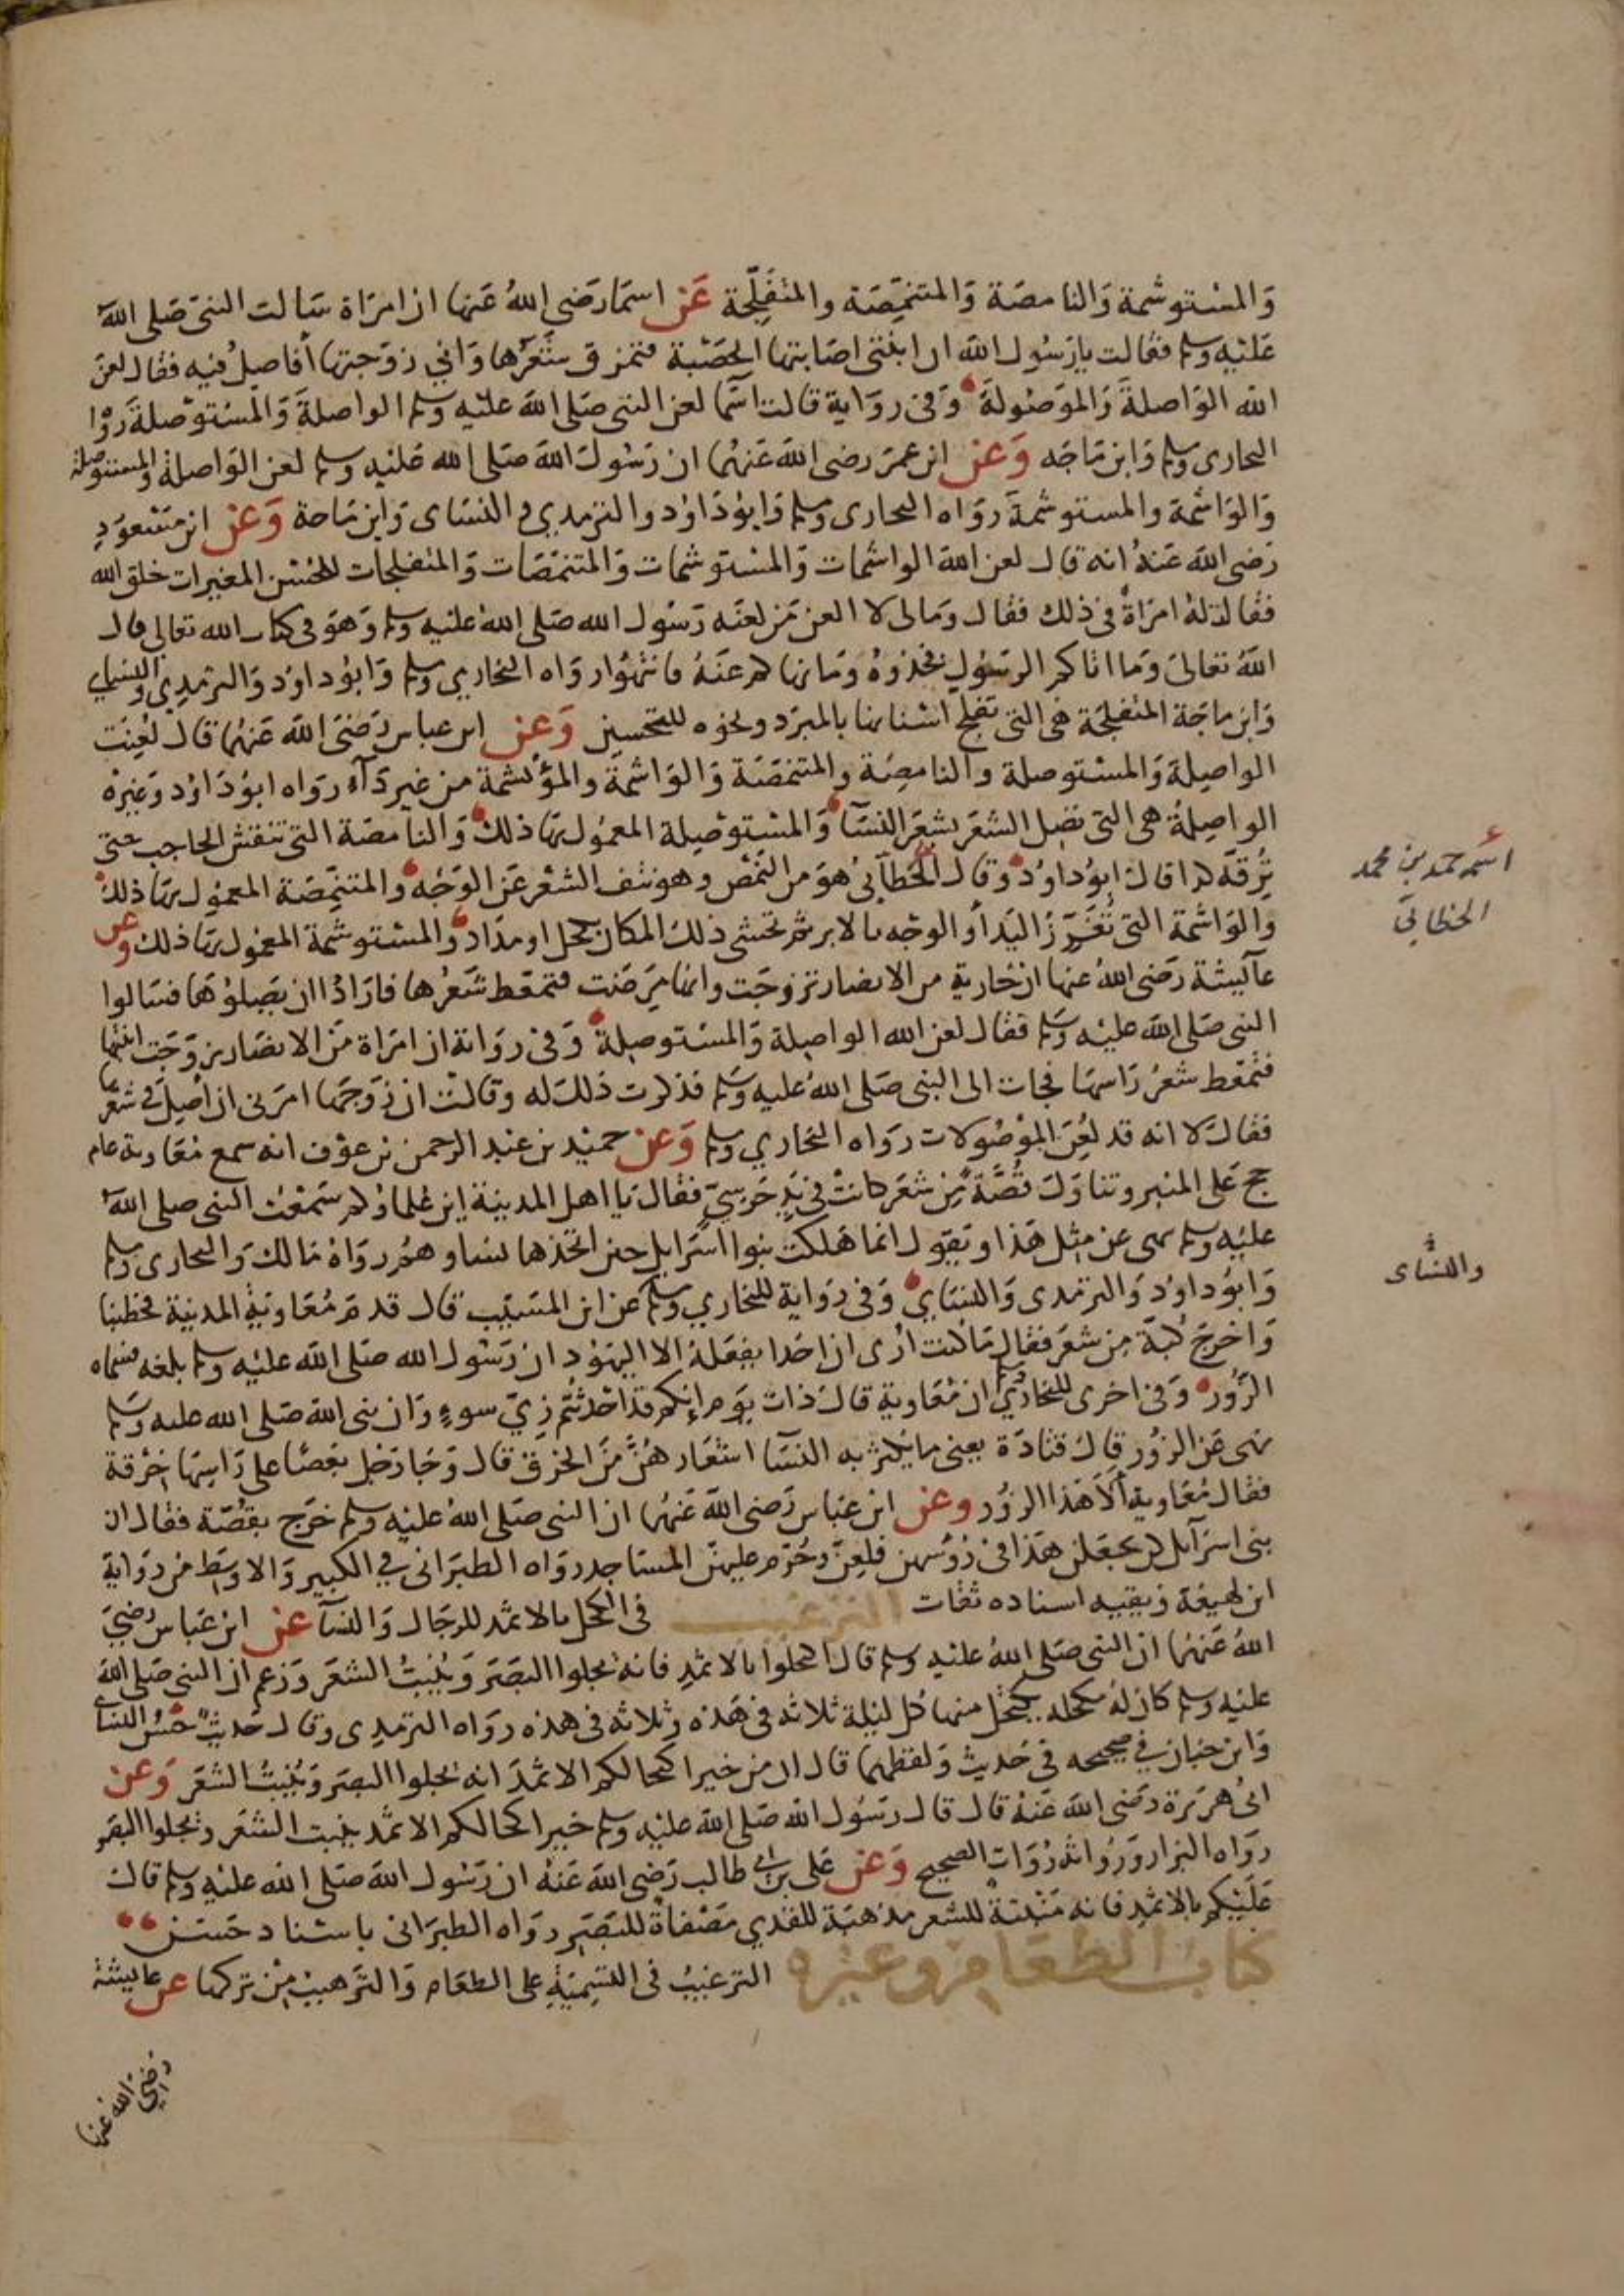 والمستوشمة والنامصة والمتنمصة والمتفلجة عن اسما رضي الله عنها ان امراة سالت النبي صلى الله
عليه وسلم فقالت يا رسول الله ان ابنتي اصابتها الحصبة فتمزق شعرها واني زوجتها أفاصل فيه فقال لعن
الله الواصلة والموصولة وفي رواية قالت اسما لعن النبي صلى الله عليه وسلم الواصلة والمستوصلة روا
البخاري ومسلم وابن ماجه وعن ابن عمر رضي الله عنهما ان رسول الله صلى الله عليه وسلم لعن الواصلة والمستوصلة
والواشمة والمستوشمة رواه البخاري ومسلم وابو داود والترمذي والنساي وابن ماجة وعن ابن مسعود
رضي الله عنه انه قال لعن الله الواشمات والمستوشمات والمتنمصات والمتفلجات للحسن المغيرات خلق الله
فقالت له امراة في ذلك فقال ومالي لا العن من لعنه رسول الله صلى الله عليه وسلم وهو في كتاب الله تعالى قال
الله تعالى وما اتاكم الرسول فخذوه وما نهاكم عنه فانتهوا رواه البخاري ومسلم وابو داود والترمذي والنساي
وابن ماجة المتفلجة هي التي تفلج اسنانها بالمبرد ونحوه للتحسين وعن ابن عباس رضي الله عنهما قال لعنت
الواصلة والمستوصلة والنامصة والمتنمصة والواشمة والمؤتشمة من غير دآء رواه ابو داود وغيره
الواصلة هي التي تصل الشعر بشعر النسآ والمستوصلة المعمول بها ذلك والنامصة التي تنقش الحاجب حتى
ترقه كذا قال ابو داود وقال الخطابي هو من النمص وهو نتف الشعر عن الوجه والمتنمصة المعمول بها ذلك
والواشمة التي تغرز اليد أو الوجه بالابر ثم تحشي ذلك المكان بكحل او مداد والمستوشمة المعمول بها ذلك وعن
عآيشة رضي الله عنها ان جارية من الانصار تزوجت وانها مرضت فتمعط شعرها فارادوا ان يصلوها فسالوا
النبي صلى الله عليه وسلم فقال لعن الله الواصلة والمستوصلة وفي رواية ان امراة من الانصار زوجت ابنتها
فتمعط شعر راسها فجات الى النبي صلى الله عليه وسلم فذكرت ذلك له وقالت ان زوجها امرني ان أصل في شعرها
فقال لا انه قد لعن الموصولات رواه البخاري ومسلم وعن حميد بن عبد الرحمن بن عوف انه سمع معاوية عام
حج على المنبر وتناول قصة من شعر كانت في يد حرسي فقال يا اهل المدينة اين علماؤكم سمعت النبي صلى الله
عليه وسلم نهى عن مثل هذا ويقول انما هلكت بنوا اسرايل حين اتخذها نساوهم رواه مالك والبخاري ومسلم
وابو داود والترمذي والنساي وفي رواية للبخاري ومسلم عن ابن المسيب قال قدم معاوية المدينة فخطبنا
واخرج كبة من شعر فقال ما كنت ارى ان احدا يفعله الا اليهود ان رسول الله صلى الله عليه وسلم بلغه فسماه
الزور وفي اخرى للبخاري ان معاوية قال ذات يوم إنكم قد احدثتم زي سوء وان نبي الله صلى الله عليه وسلم
نهى عن الزور قال قتادة يعني ما يكثر به النسآ اشعارهن من الخرق قال وجا رجل بعصا على راسها خرقة
فقال معاوية ألا هذا الزور وعن ابن عباس رضي الله عنهما ان النبي صلى الله عليه وسلم خرج بقصة فقال ان
بني اسرآيل كن يجعلن هذا في رؤسهن فلعن وحرم عليهن المساجد رواه الطبراني في الكبير والاوسط من رواية
ابن لهيعة وبقيه اسناده ثقات الترغيب في الكحل بالاثمد للرجال والنسآ عن ابن عباس رضي
الله عنهما ان النبي صلى الله عليه وسلم قال اكحلوا بالاثمد فانه يجلوا البصر وينبت الشعر وزعم ان النبي صلى الله
عليه وسلم كان له مكحله يكتحل منها كل ليلة ثلاثه في هذه وثلاثه في هذه رواه الترمذي وقال حديث حسن والنساي
وابن حبان في صحيحه في حديث ولفظهما قال ان من خير اكحالكم الاثمد انه يجلوا البصر وينبت الشعر وعن
ابي هريرة رضي الله عنه قال قال رسول الله صلى الله عليه وسلم خير اكحالكم الاثمد ينبت الشعر ويجلوا البصر
رواه البزار ورواته روات الصحيح وعن علي بن ابي طالب رضي الله عنه ان رسول الله صلى الله عليه وسلم قال
عليكم بالاثمد فانه منبتة للشعر مذهبة للقذي مصفاة للبصر رواه الطبراني باسناد حسن
كتاب الطعام وغيره الترغيب في التسمية على الطعام والترهيب من تركها عن عايشة
رضي الله عنها
اسمه حمد بن محمد
الخطابي
والنساي